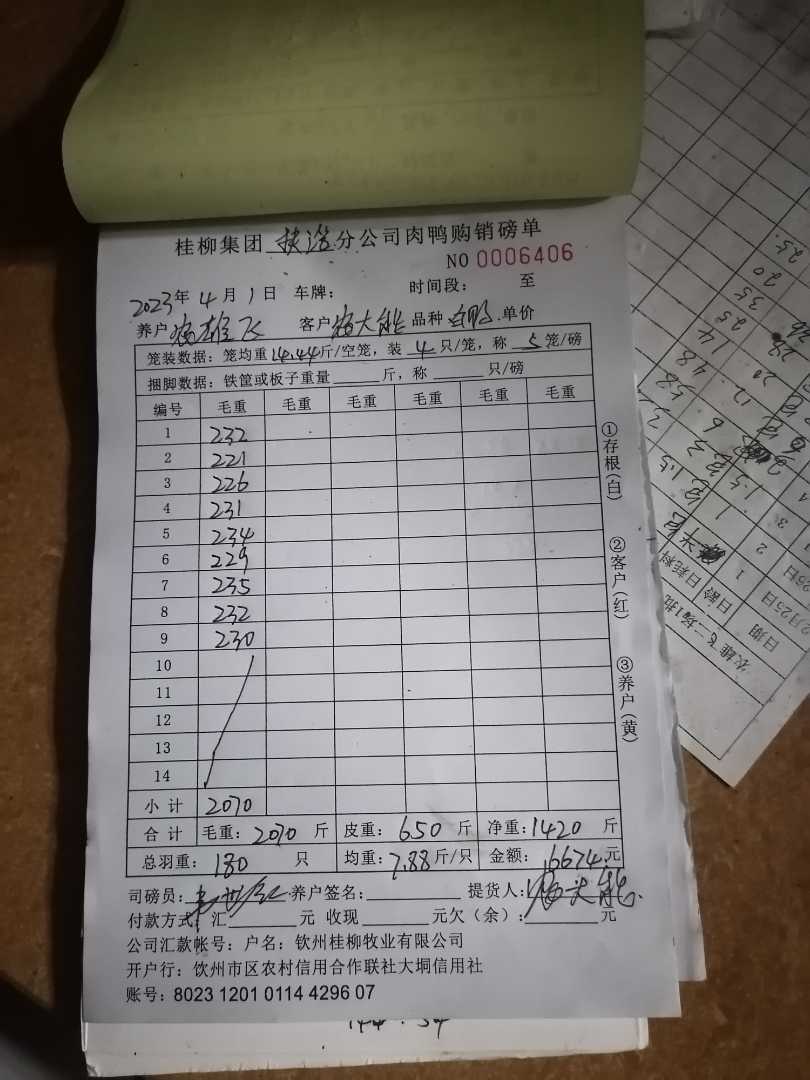 桂柳集团 分公司肉鸭购销磅单
NO 0006406
2023年4月1日 车牌： 时间段： 至
养户 雄飞 客户 大能 品种 白鸭 单价
笼装数据：笼均重14.44斤/空笼，装 4 只/笼，称 5 笼/磅
捆脚数据：铁筐或板子重量 斤，称 只/磅
编号 毛重 毛重 毛重 毛重 毛重 毛重
1 232
2 221
3 226
4 231
5 234
6 229
7 235
8 232
9 230
10
11
12
13
14
小计 2070
合计 毛重：2070 斤 皮重：650 斤 净重：1420 斤
总羽重：180 只 均重：7.88斤/只 金额：6674元
司磅员： 养户签名： 提货人：
付款方式：汇 元 收现 元欠（余）： 元
公司汇款帐号：户名：钦州桂柳牧业有限公司
开户行：钦州市区农村信用合作联社大垌信用社
账号：8023 1201 0114 4296 07
①存根(白)
②客户(红)
③养户(黄)
农雄飞二场1批
日期
日龄
日耗料